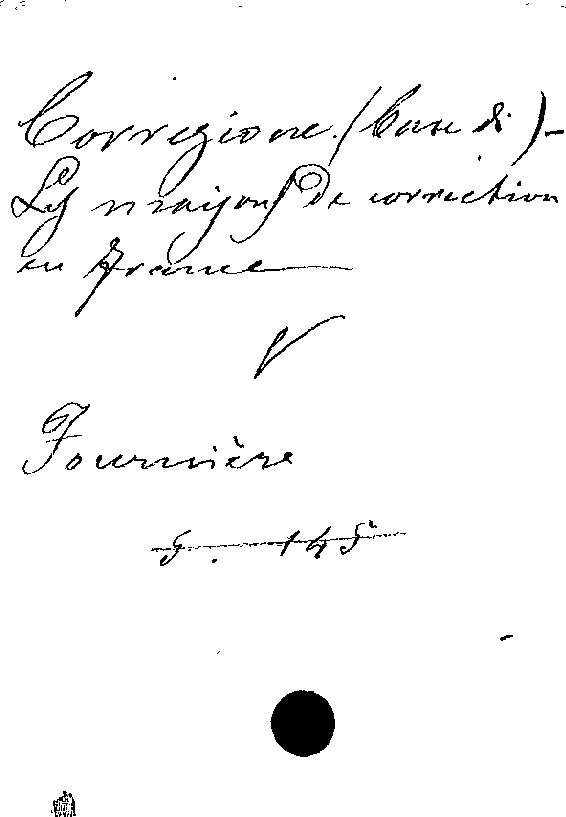 Correzione (Case di) -
Les maisons de correction
en France
V
Fournière
5. 145